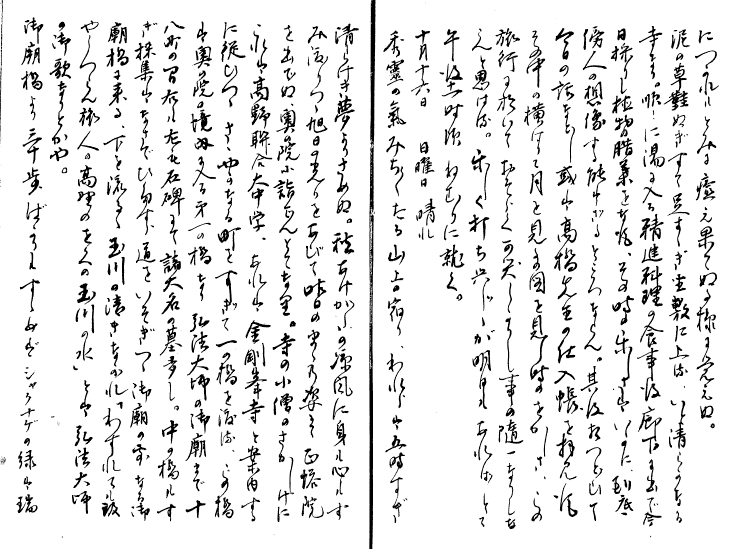 につかれしとみゆ 癒え果てぬる様に覚えぬ。
泥の草鞋ぬぎすて足すゝぎ座敷に上る、いと清らかなる
寺なり。順に湯に入る 精進料理の食事後 廊下に出で今
日採りし植物の腊葉をなす、その時の楽しさ
傍人の想像する能はざるところならん。其後
今日の話をなし 或は高橋先生の仕入帳を
その中の横は月を見る図を見し時のをかしさ、この
旅行に於いて 事の随一なりしなら
んと思はる。楽しく打ち興じしが明日もあればとて
午後十一時頃 ねむりに就く。
十月十六日 日曜日 晴れ
秀霊の気みちみちたる山上の宿り、われらは五時すぎ
清らけき夢よりさめぬ。 の涼風に身も心もす
み渡りつゝ旭日の光りをあびて昨日の 姿にて 院
を出でぬ、奥の院に詣でんとてなり。寺の小僧の
は高野聯合大中学、あれは金剛峯寺と案内する
に従ひつゝ さゝやかなる町をすぎて一の橋を渡る、この橋
は奥の院の境内に入る第一の橋なり 弘法大師の御廟まで十
八町の間 右も左も石碑にて諸大名の墓多し。中の橋もす
ぎ採集は 道をいそぎつゝ御廟の前なる御
廟橋に来る、下を流るゝ玉川の清きながれ、「わすれても汲
やしつらん旅人の高野のおくの玉川の水」とは弘法大師
の御歌なりとかや。
御廟橋より三十歩ばかりにすゝめば シャクナゲの緑は瑞